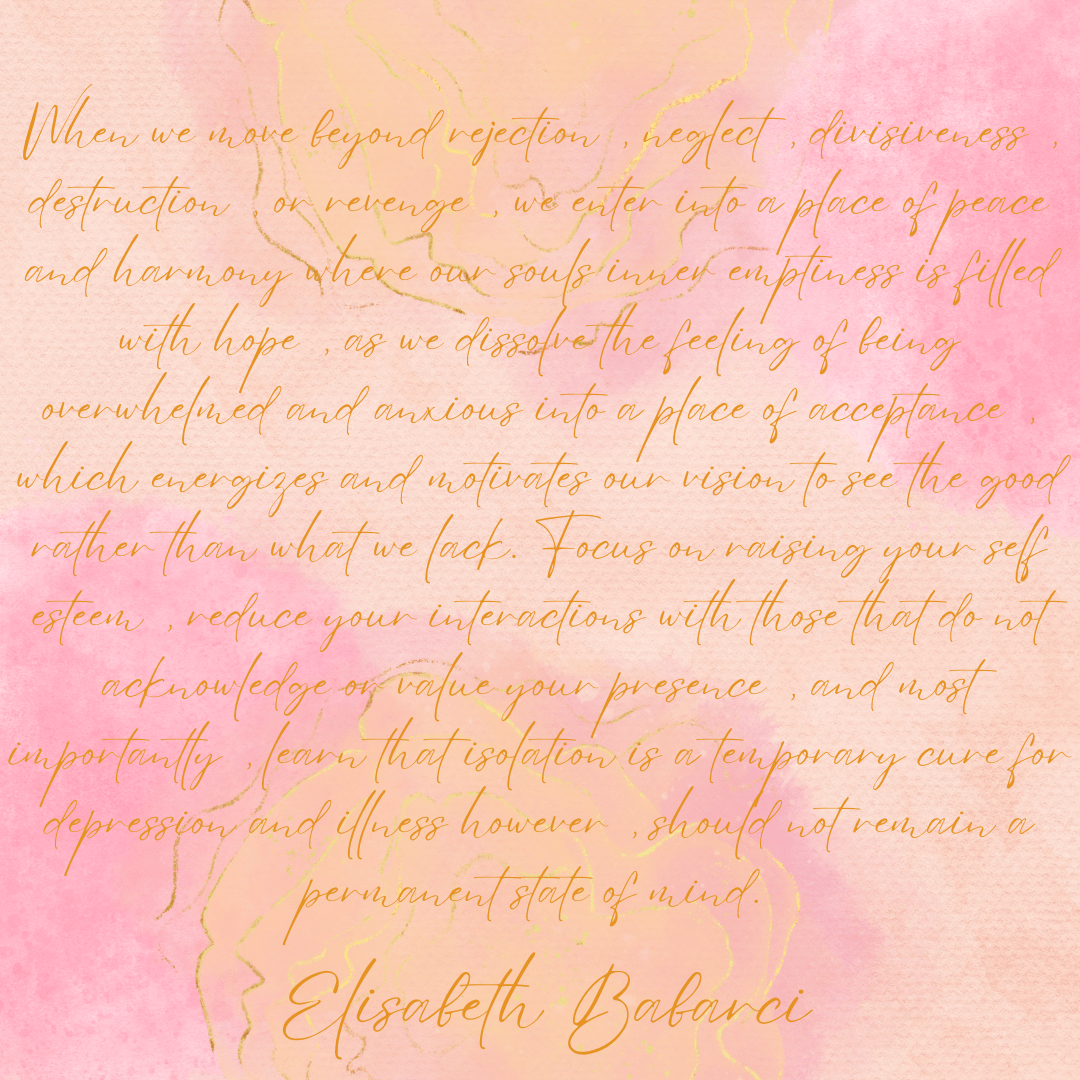 When we move beyond rejection , neglect , divisiveness ,
destruction , or revenge , we enter into a place of peace
and harmony where our souls inner emptiness is filled
with hope , as we dissolve the feeling of being
overwhelmed and anxious into a place of acceptance ,
which energizes and motivates our vision to see the good
rather than what we lack. Focus on raising your self
esteem , reduce your interactions with those that do not
acknowledge or value your presence , and most
importantly , learn that isolation is a temporary cure for
depression and illness however , should not remain a
permanent state of mind.
Elisabeth Babarci